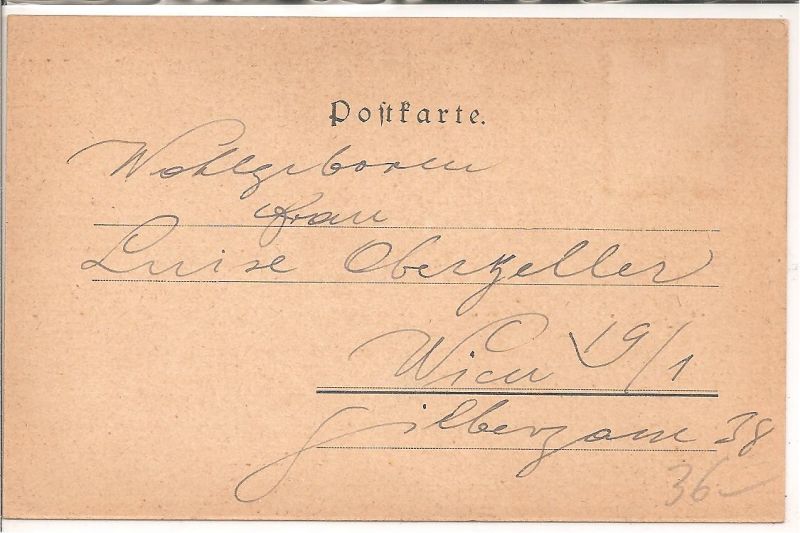 Postkarte.
Wohlgeboren
Frau
Luise Oberzeller
Wien 19/1
Silbergasse 38
36